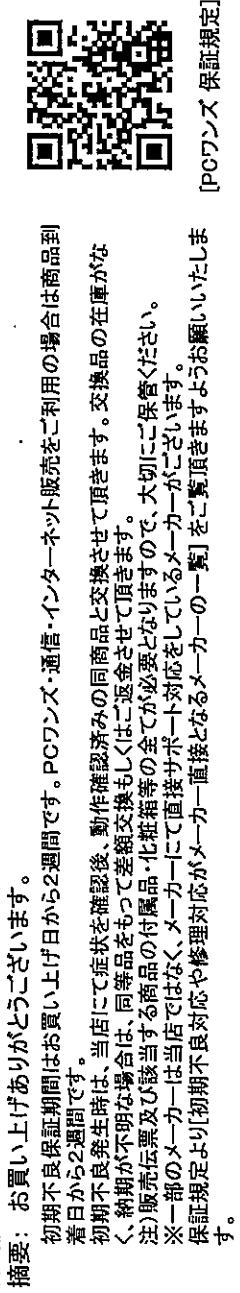 摘要: お買い上げありがとうございます。
初期不良保証期間はお買い上げ日から2週間です。PCワンズ・通信・インターネット販売をご利用の場合は商品到
着日から2週間です。
初期不良発生時は、当店にて症状を確認後、動作確認済みの同商品と交換させて頂きます。交換品の在庫がな
く、納期が不明な場合は、同等品をもって差額交換もしくはご返金させて頂きます。
注)販売伝票及び該当する商品の付属品・化粧箱等の全てが必要となりますので、大切にご保管ください。
※一部のメーカーは当店ではなく、メーカーにて直接サポート対応をしているメーカーがございます。
保証規定より[初期不良対応や修理対応がメーカー直接となるメーカーの一覧]をご覧頂きますようお願いいたしま
す。
[PCワンズ 保証規定]